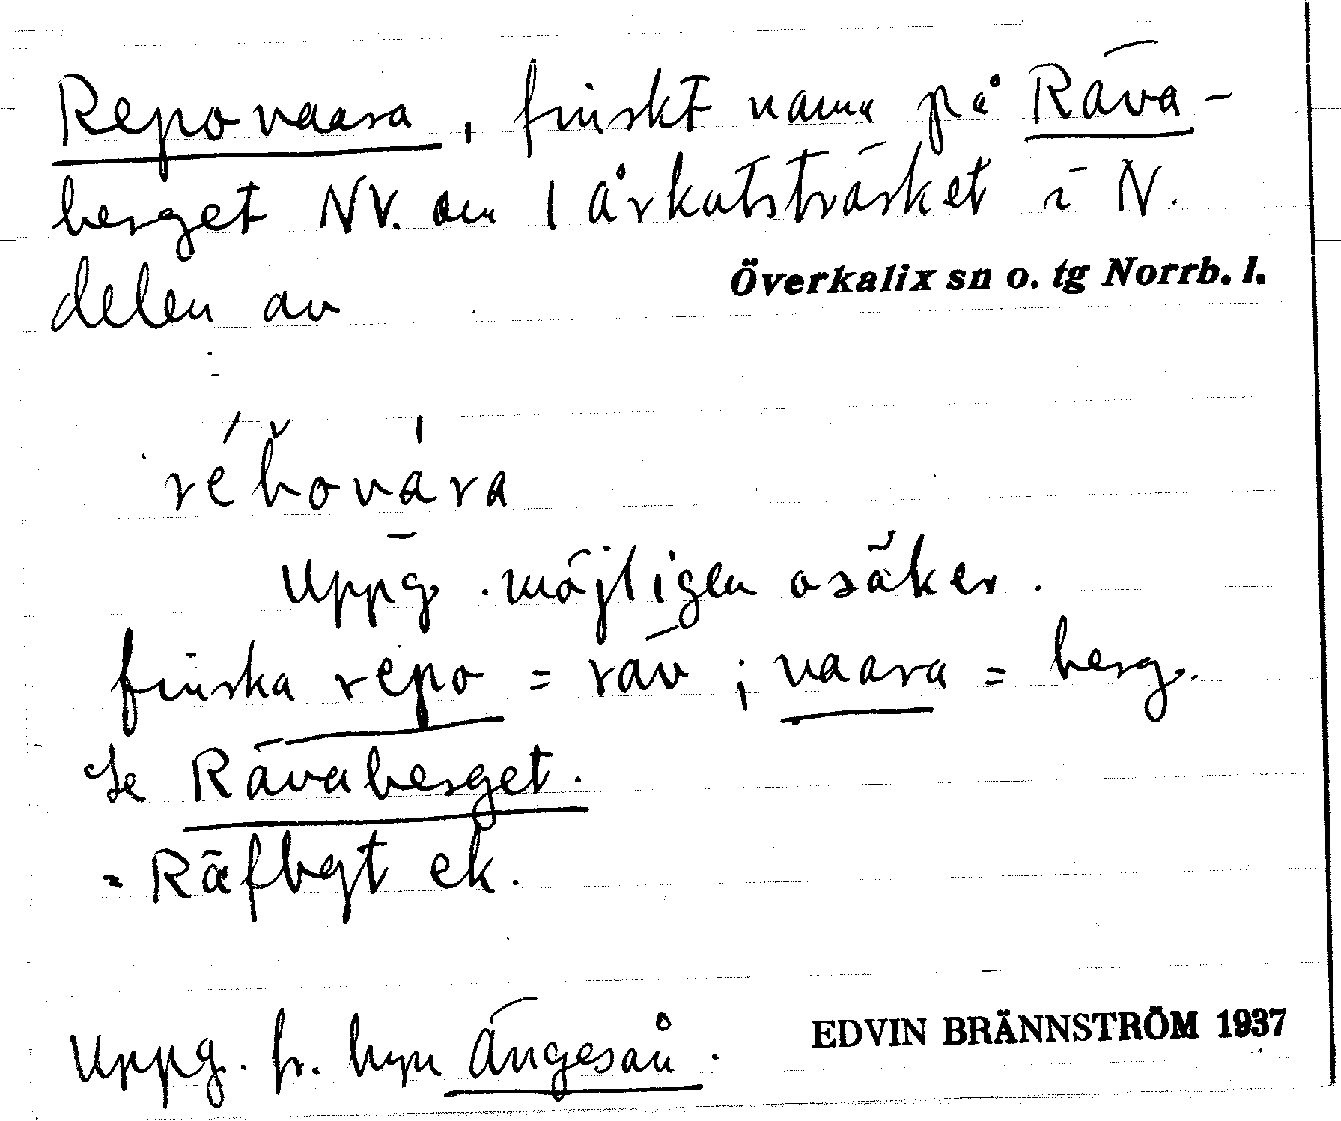 Repovaara, finskt namn på Räva-
berget NV. om Lårkatsträsket i N.
delen av Överkalix sn o. tg Norrb. l.
Uppg. möjligen osäker.
finska repo = räv ; vaara = berg.
Se Rävaberget.
= Räfbgt ek.
Uppg. fr. byn Ängesån. EDVIN BRÄNNSTRÖM 1937